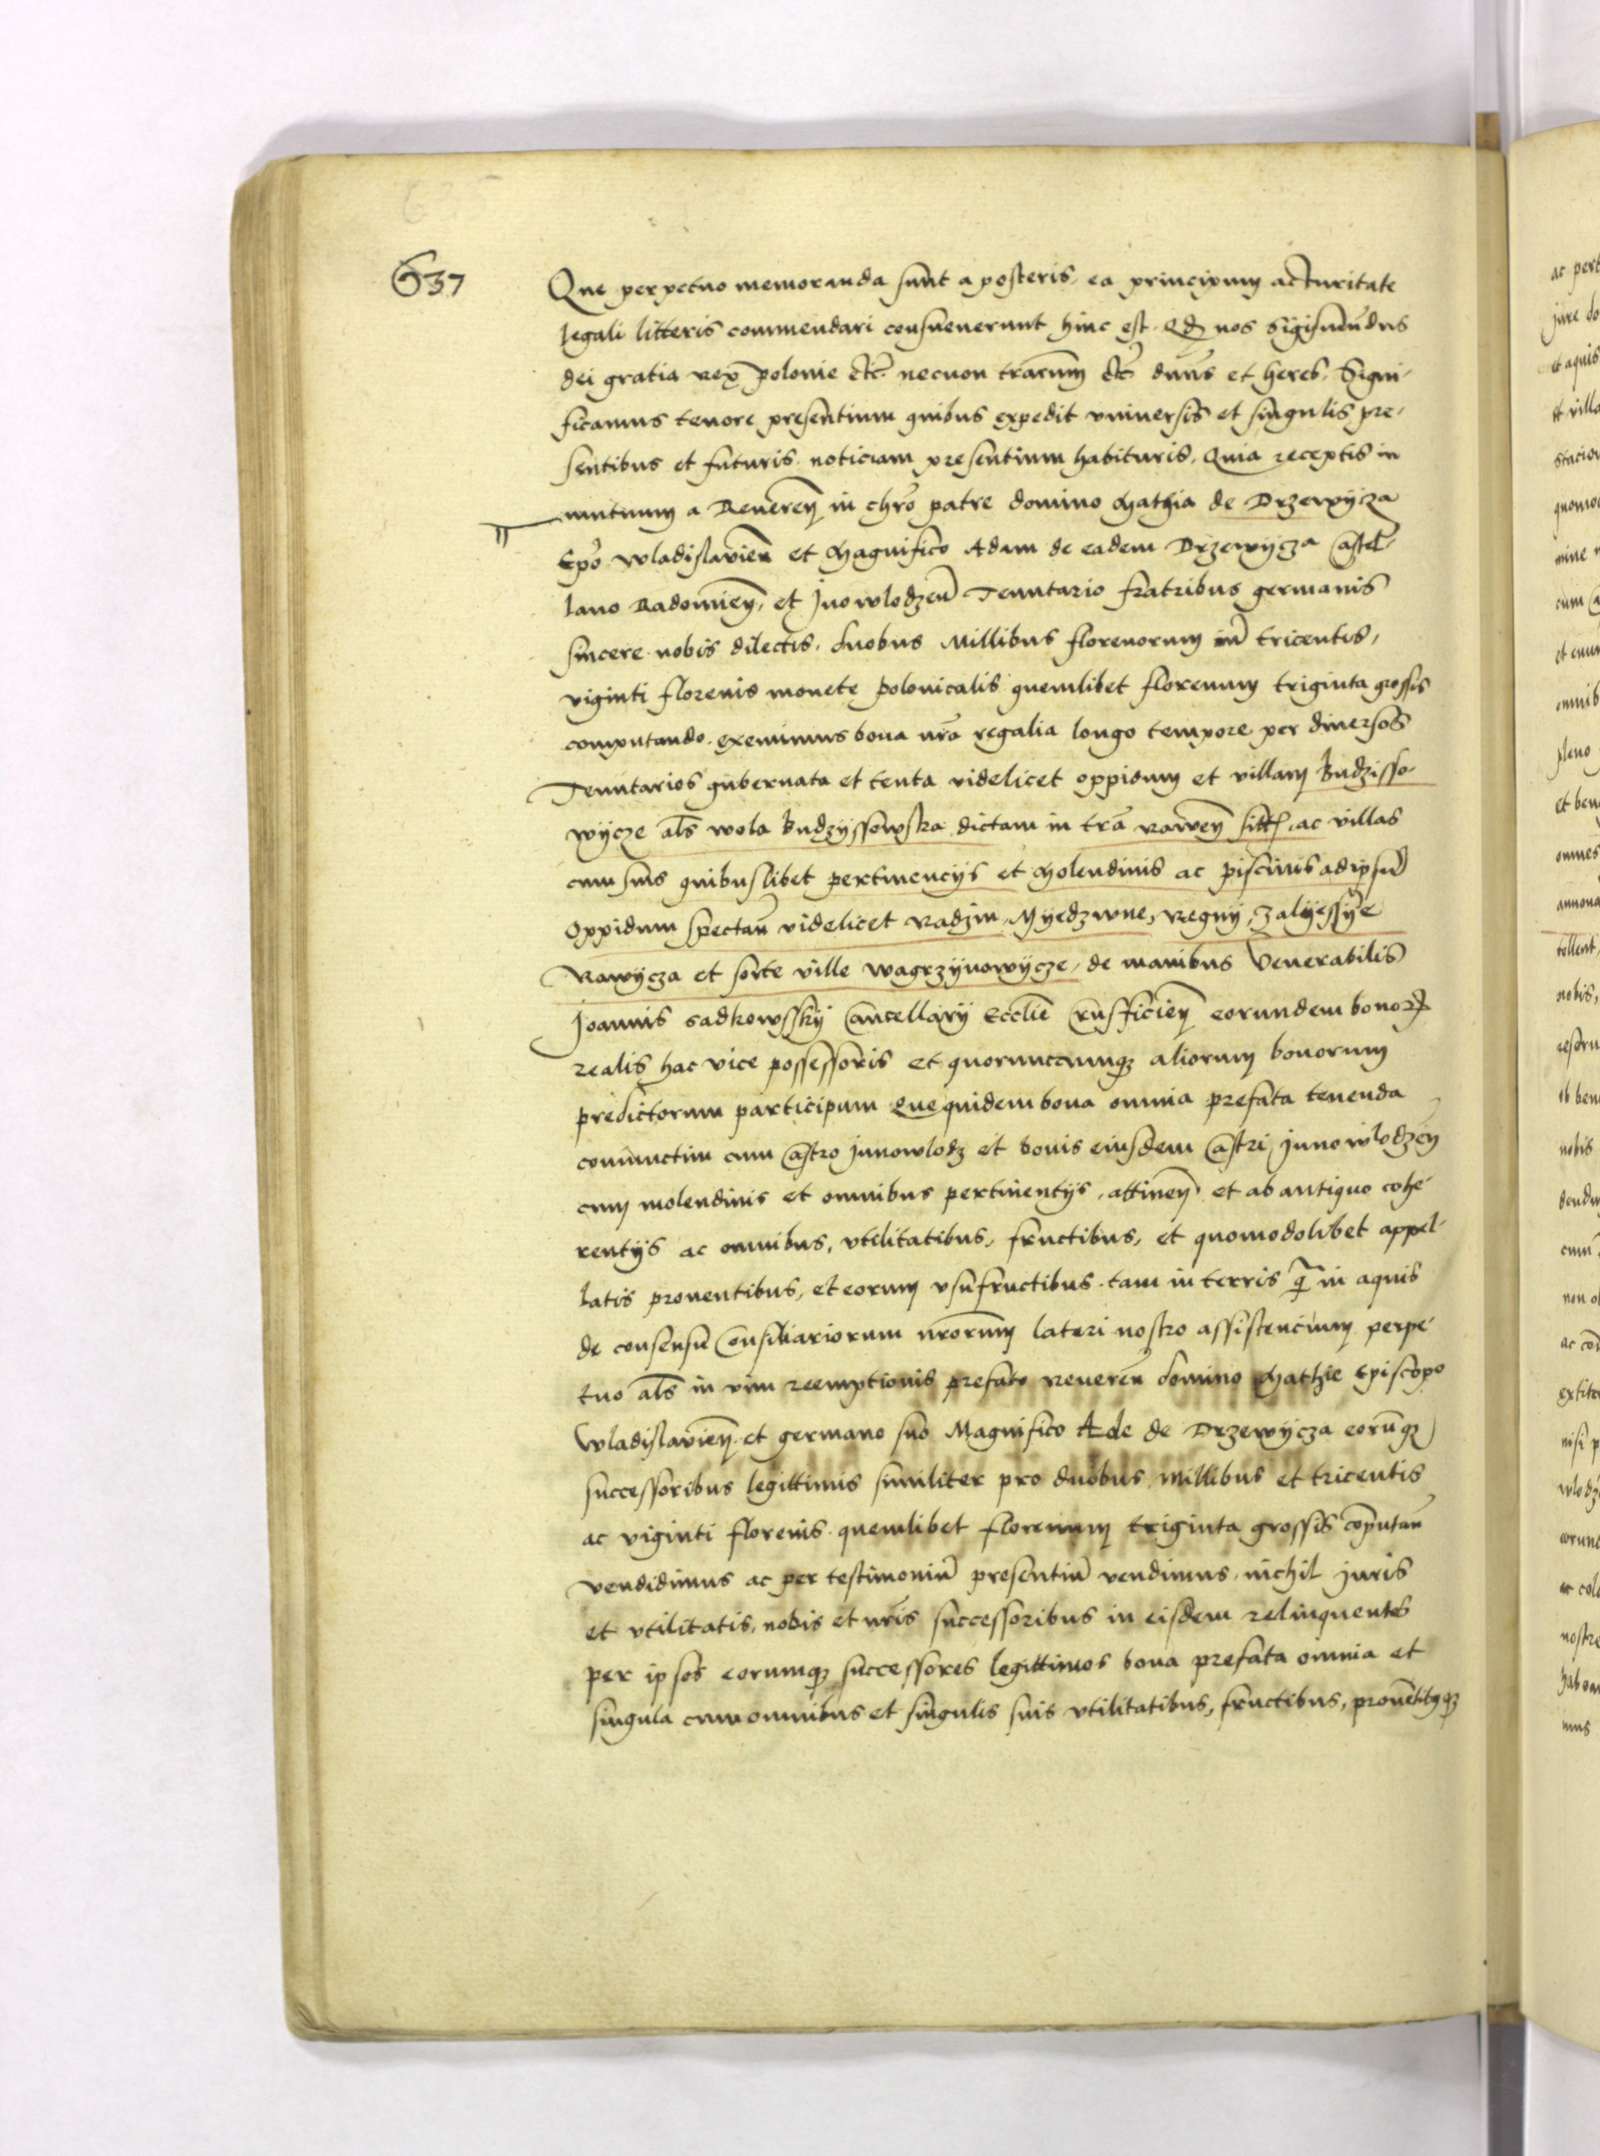 637
Que perpetuo memoranda sunt a posteris, ea principum acturitate
legali litteris commendari consueverunt hinc est. Qd nos Sigismundus
dei gratia rex polonie etc. necnon trarum etc dnus et heres. Signi-
ficamus tenore presentium quibus expedit universis et singulis pre-
sentibus et futuris. noticiam presentium habituris. Quia receptis in
mutuum a Reueren in chro patre domino Mathia de Drzewycza
Epo Wladislavien et Magnifico Adam de eadem Drzewycza Castel-
lano Radomien, et Inowlodzen Tenutario fratribus germanis
sincere nobis dilectis. duobus Millibus florenorum tricentis,
viginti florenis monete polonicalis quemlibet florenum triginta grossis
computando. exemimus bona nra regalia longo tempore per diversos
Tenutarios gubernata et tenta videlicet oppidum et villam Budzisso-
wycze als wola Budzyssowska dictam in tra Rawen sitt. ac villas
cum suis quibuslibet pertinencijs et Molendinis ac piscinis ad ipsum
Oppidum spectan videlicet Radzin, Myedzwne, Regny, Zalyessye
Rawycza et sorte ville Wagrzynowycze, de manibus Venerabilis
Joannis Sadkowssky Cancellarij Ecclie Crusficien eorundem bonorum
realis hac vice possessoris et quoruncumque aliorum bonorum
predictorum participum Que quidem bona omnia prefata tenenda
coniunctim cum Castro Junowlodz et bonis eiusdem Castri Junowlodzen
cum molendinis et omnibus pertinentijs, attinen et ab antiquo cohe-
rentijs ac omnibus, utilitatibus, fructibus, et quomodolibet appel-
latis proventibus, et eorum usufructibus. tam in terris q in aquis
de consensu Consiliariorum nrorum lateri nostro assistencium perpe-
tuo als in vim reemptionis prefato Reueren domino Mathie Episcopo
Wladislavien. et germano suo Magnifico Ade de Drzewycza eorumque
successoribus legittimis similiter pro duobus Millibus et tricentis
ac viginti florenis quemlibet florenum triginta grossis computan
vendidimus ac per testimonium presentium vendimus. nichil juris
et utilitatis, nobis et nris successoribus in eisdem relinquentes
per ipsos eorumque successores legittimos bona prefata omnia et
singula cum omnibus et singulis suis utilitatibus, fructibus, proventibusque